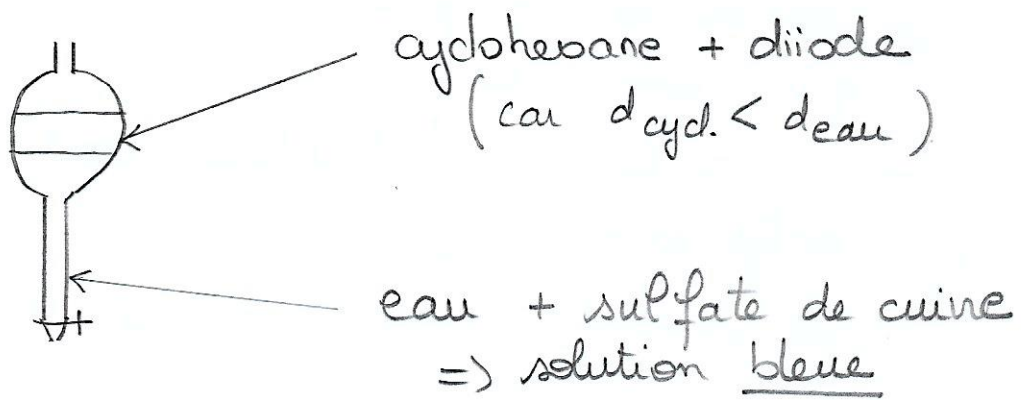 cyclohexane + diiode
(car d cycl. < d eau)
eau + sulfate de cuivre
=> solution bleue